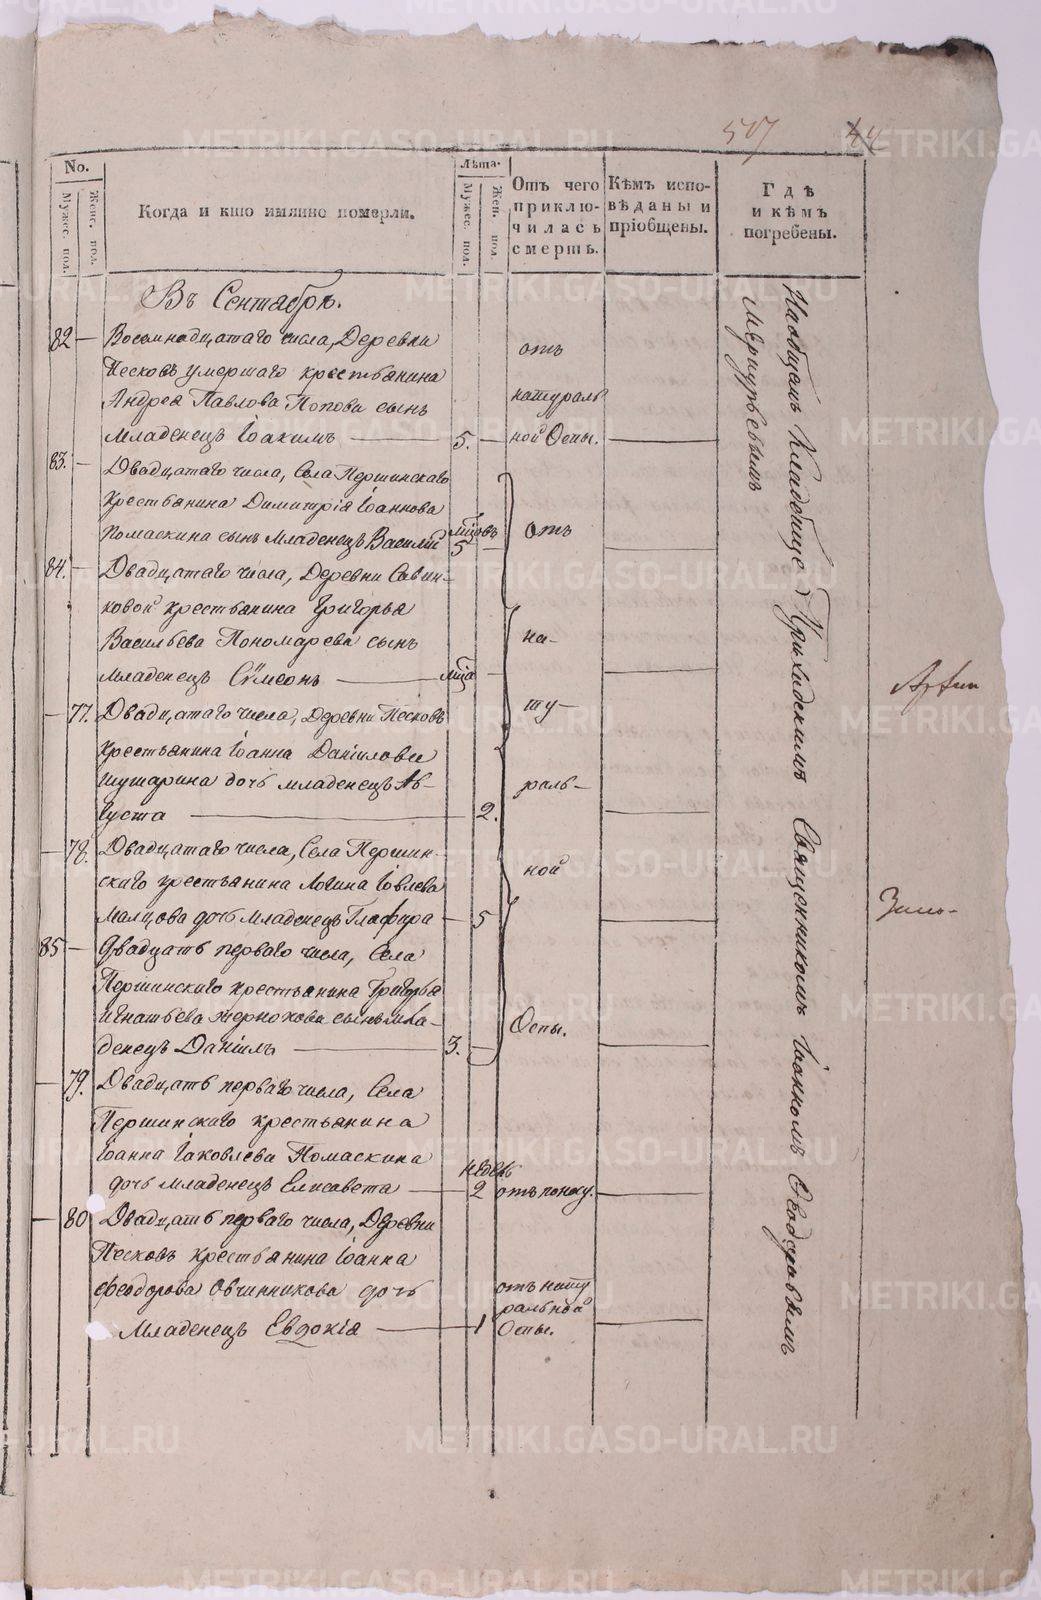 507 44
No.
Мужес. пол.
Женс. пол.
Когда и кто имянно померли.
Лѣта.
Мужес. пол.
Жен. пол.
Отъ чего
приклю-
чилась
смерть.
Кѣмъ испо-
вѣданы и
пріобщены.
Гдѣ
и кѣмъ
погребены.
Въ Сентябрѣ.
82 Восемнадцатаго числа, Деревни
Песковъ умершаго крестьянина
Андрея Павлова Попова сынъ
Младенецъ Іоакимъ 5.
отъ
натураль
ной Оспы.
83. Двадцатаго числа, Села Першинскаго
Крестьянина Димитрія Іоаннова
Помаскина сынъ Младенецъ Василій
мцовъ
5
84. Двадцатаго числа, Деревни Савин-
ковой крестьянина Григорья
Васильева Пономарева сынъ
Младенецъ Сѵмеонъ мца
77. Двадцатаго числа, Деревни Песковъ
крестьянина Іоанна Данилова
Шушарина дочь младенецъ Ав-
густа 2.
78. Двадцатаго числа, Села Першин-
скаго крестьянина Логина Іовлева
Малцова дочь Младенецъ Глафира 5
85 Двадцать перваго числа, Села
Першинскаго крестьянина Григорья
Игнатьева Жернокова сынъ мла-
денецъ Даніилъ 3.
отъ
на-
ту-
раль-
ной
Оспы.
79. Двадцать перваго числа, Села
Першинскаго крестьянина
Іоанна Іаковлева Помаскина
дочь младенецъ Елисавета
недель
2 отъ поносу.
80 Двадцать перваго числа, Деревни
Песковъ крестьянина Іоанна
Феодорова Овчинникова дочь
Младенецъ Евдокія 1
отъ нату
ральной
Оспы.
На общемъ Кладбище Приходскимъ Священникомъ Іоанномъ Феодоровымъ
Меркурьевымъ
METRIKI.GASO-URAL.RU